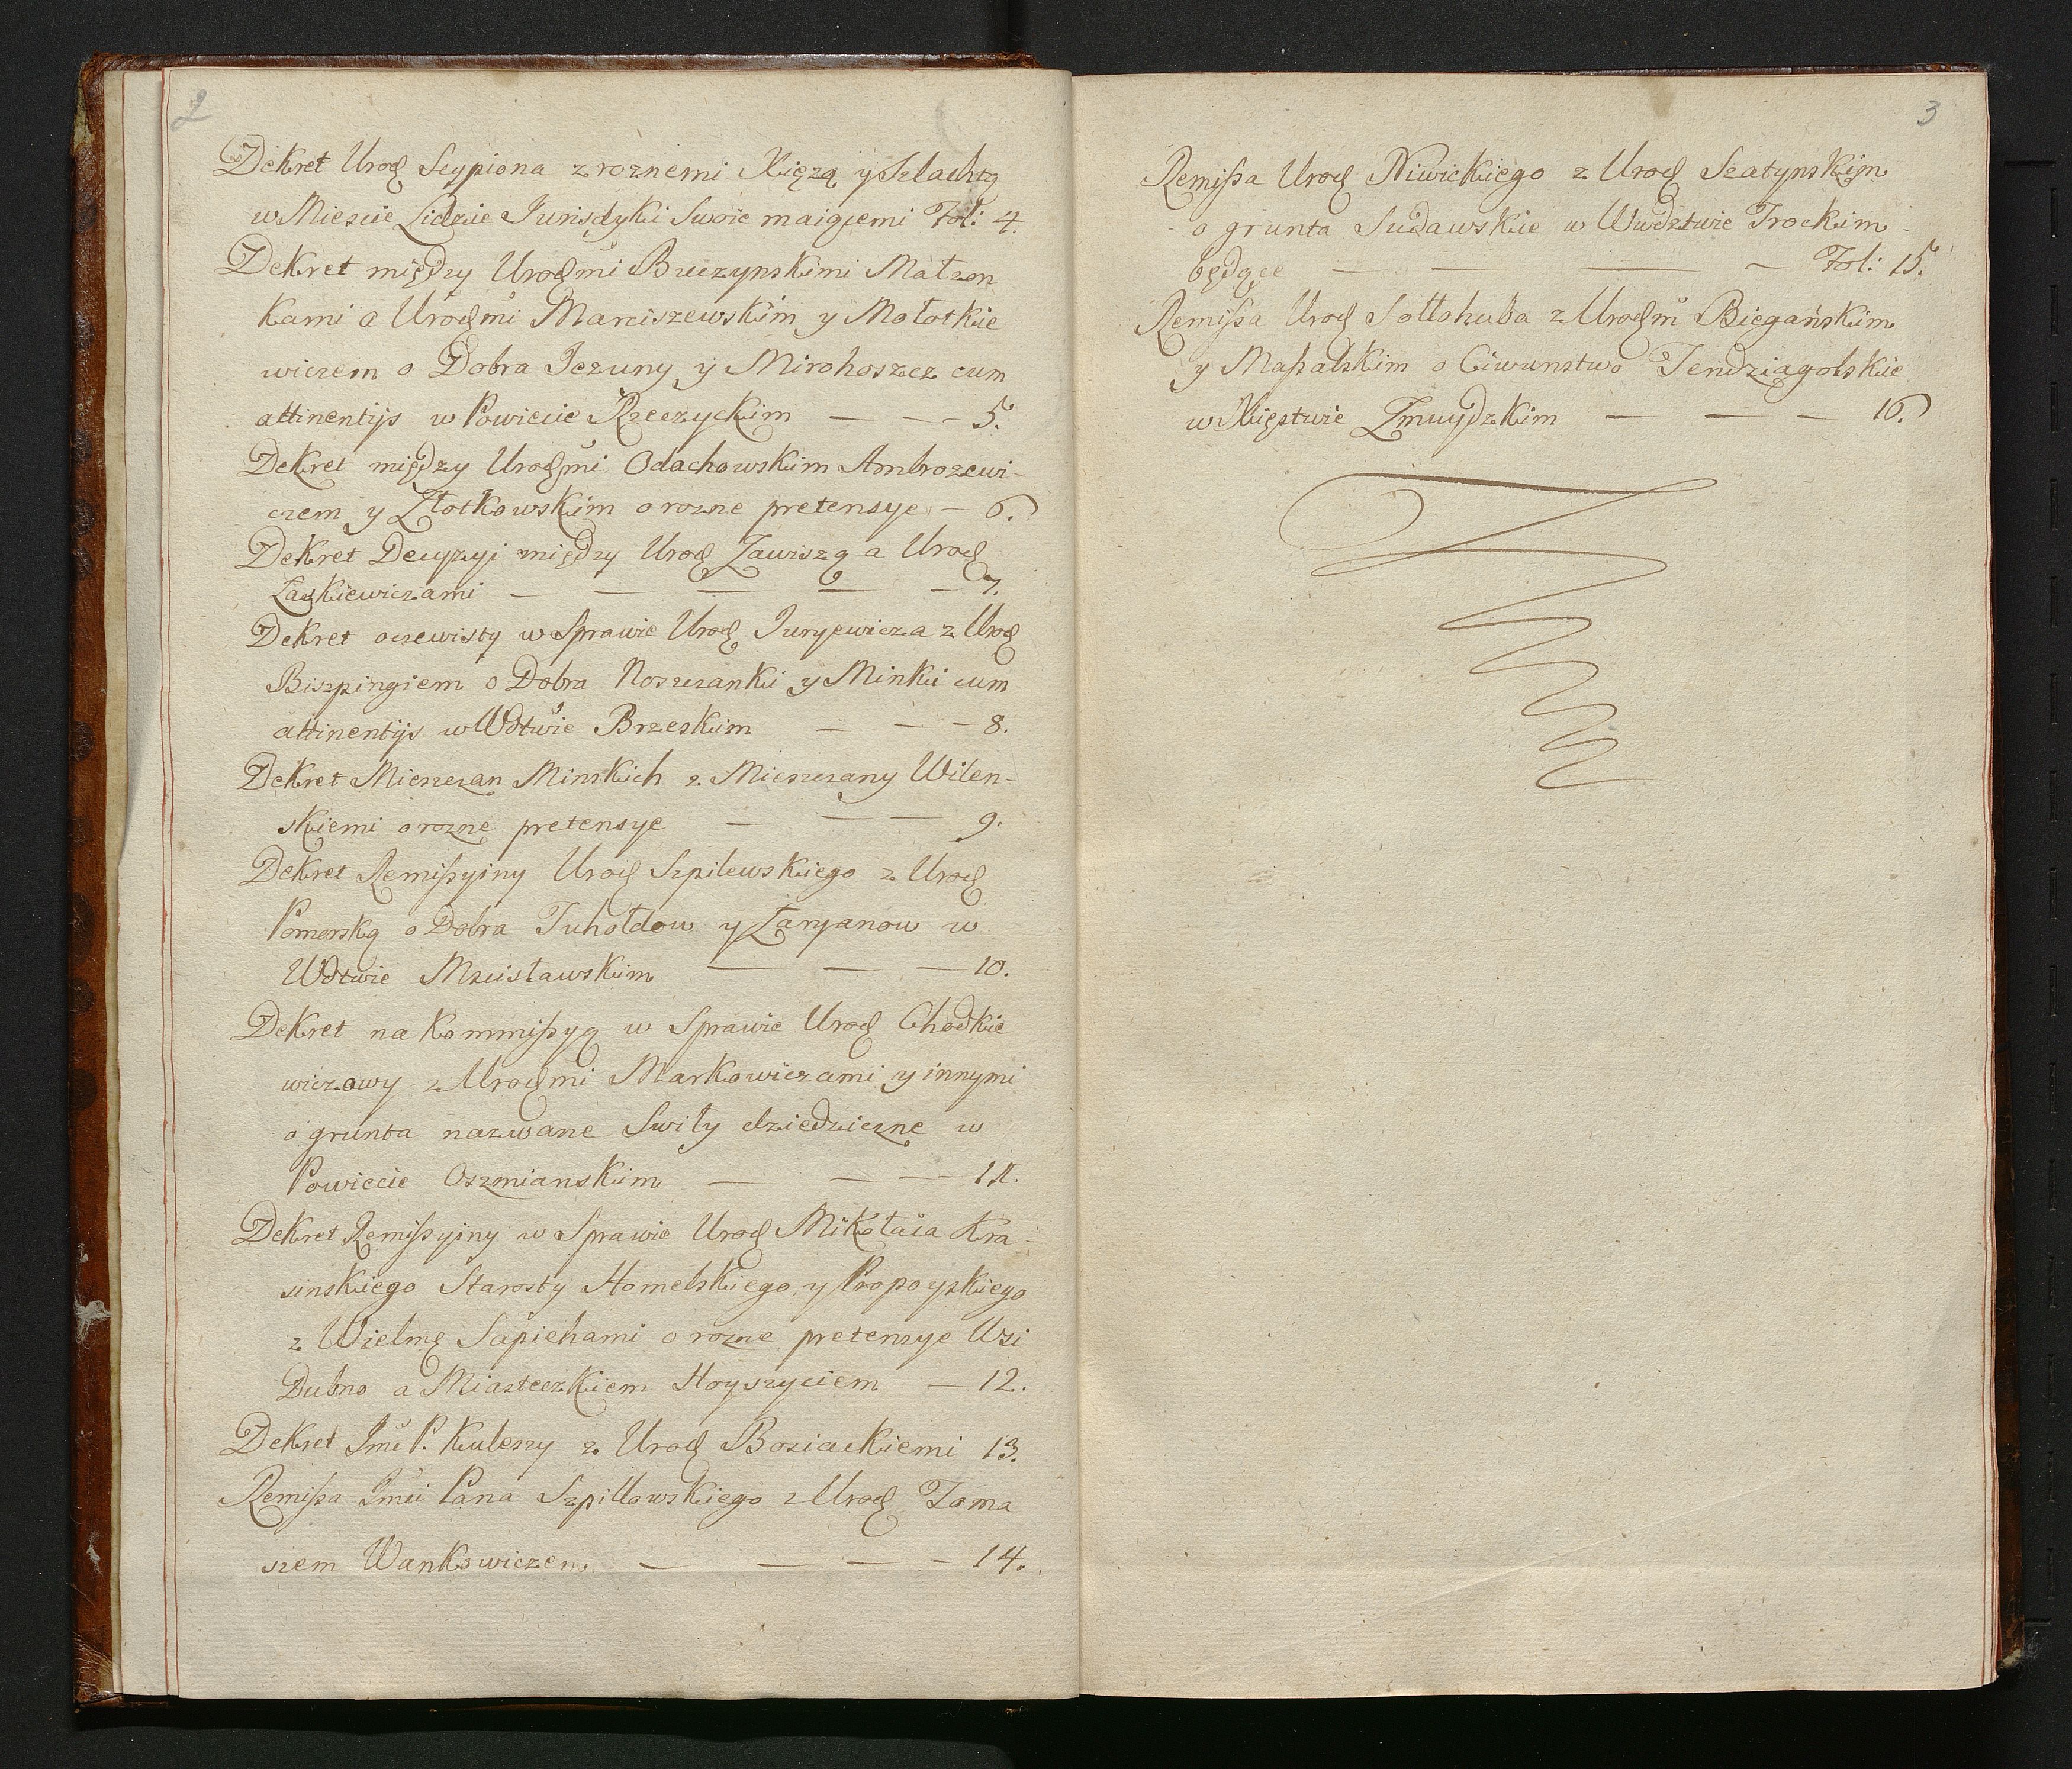 2
Dekret Urod Scypiona z roznemi Xięzą y Szlachtą
w Miescie Lidzie Jurisdyki Swoie maiącemi Fol: 4.
Dekret między Urodmi Buczynskimi Małzon
kami a Urodmi Marciszewskim y Mołotkie
wiczem o Dobra Jczuny y Mirohoszcz cum
attinentijs w Powiecie Rzeczyckim — — — 5.
Dekret między Urodmi Odachowskim Ambrozewi-
czem y Złotkowskim o rozne pretensye — 6.
Dekret Decyzyi między Urod Zawiszą a Urod
Laskiewiczami — — — — — 7.
Dekret oczewisty w Sprawie Urod Juryewicza z Urod
Biszpingiem o Dobra Noszczanki y Minki cum
attinentijs w Wdtwie Brzeskim — — — 8.
Dekret Mieszczan Minskich z Mieszczany Wilen-
skiemi o rozne pretensye — — — 9.
Dekret Remissyiny Urod Szpilewskiego z Urod
Pomorską o Dobra Tuhołdow y Laryanow w
Wdtwie Mscisławskim — — — 10.
Dekret na Kommissyą w Sprawie Urod Chodkie
wiczowy z Urodmi Markowiczami y innymi
o grunta nazwane Swiły dziedziczne w
Powiecie Oszmianskim — — — — 11.
Dekret Remissyiny w Sprawie Urod Mikołaia Kra-
sinskiego Starosty Homelskiego y Propoyskiego
z Wielmę Sapiehami o rozne pretensye Wsi
Dubno a Miasteczkiem Horyszyciem — 12.
Dekret Jmć P. Kuleszy z Urod Bosiackiemi 13.
Remissa Jmći Pana Szpillowskiego z Urod Toma
szem Wankowiczem — — — — 14.
3
Remissa Urod Niwickiego z Urod Szatynskim
o grunta Sudawskie w Wwdztwie Trockim
będące — — — — Fol: 15.
Remissa Urod Sołłohuba z Urodm Biegańskim
y Massalskim o Ciwunstwo Tendziagolskie
w Xięstwie Zmuydzkim — — — 16.